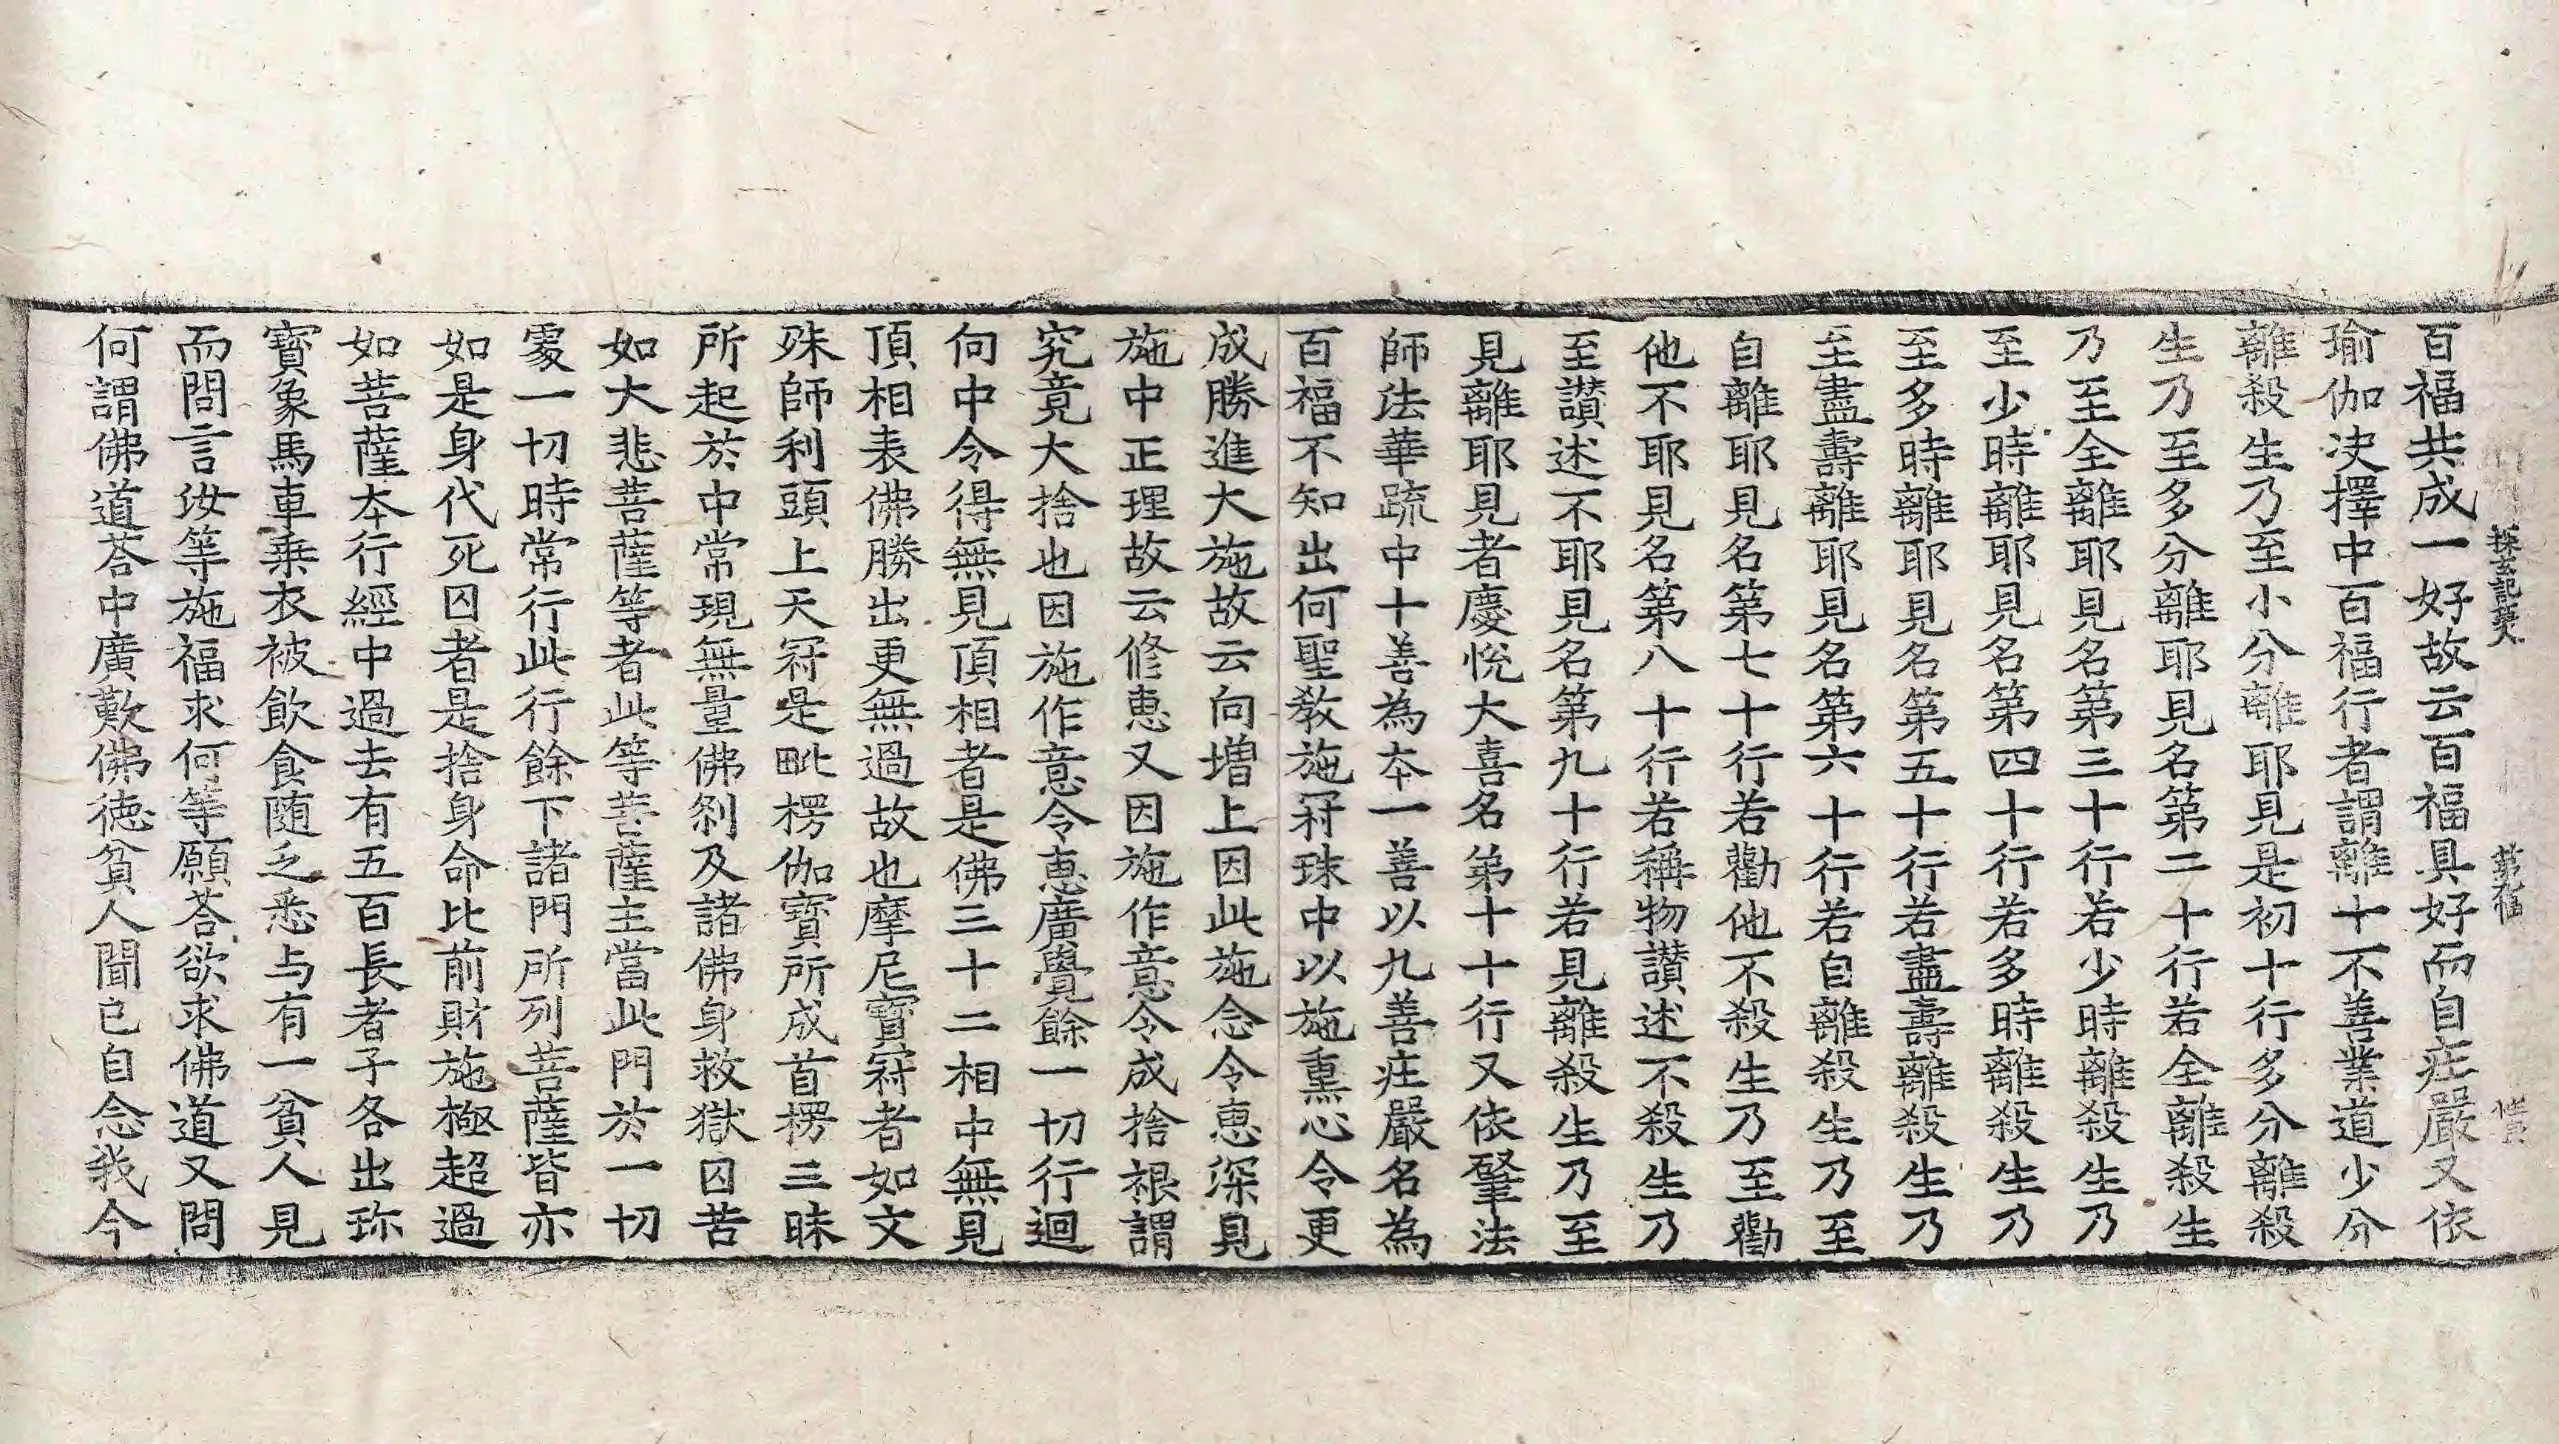 百福共成一好故云百福具好而自庄嚴又依
瑜伽決擇中百福行者謂離十不善業道少分
離殺生乃至小分離耶見是初十行多分離殺
生乃至多分離耶見名第二十行若全離殺生
乃至全離耶見名第三十行若少時離殺生乃
至少時離耶見名第四十行若多時離殺生乃
至多時離耶見名第五十行若盡壽離殺生乃
至盡壽離耶見名第六十行若自離殺生乃至
自離耶見名第七十行若勸他不殺生乃至勸
他不耶見名第八十行若稱物讃述不殺生乃
至讃述不耶見名第九十行若見離殺生乃至
見離耶見者慶悅大喜名第十十行又依肇法
師法華疏中十善為夲一善以九善庄嚴名為
百福不知出何聖教施冠珠中以施熏心令更
成勝進大施故云向增上因此施念令恵深見
施中正理故云修恵又因施作意令成捨根謂
究竟大捨也因施作意令恵廣覺餘一切行迴
向中令得無見頂相者是佛三十二相中無見
頂相表佛勝出更無過故也摩尼寶冠者如文
殊師利頭上天冠是毗楞伽寶所成首楞三昧
所起於中常現無量佛刹及諸佛身救獄囚苦
如大悲菩薩等者此等菩薩主當此門於一切
䖏一切時常行此行餘下諸門所列菩薩皆亦
如是身代死囚者是捨身命比前財施極超過
如菩薩夲行經中過去有五百長者子各出珎
寶象馬車乗衣被飲食随乏悉与有一貧人見
而問言汝等施福求何等願荅欲求佛道又問
何謂佛道荅中廣歎佛徳貧人聞已自念我今